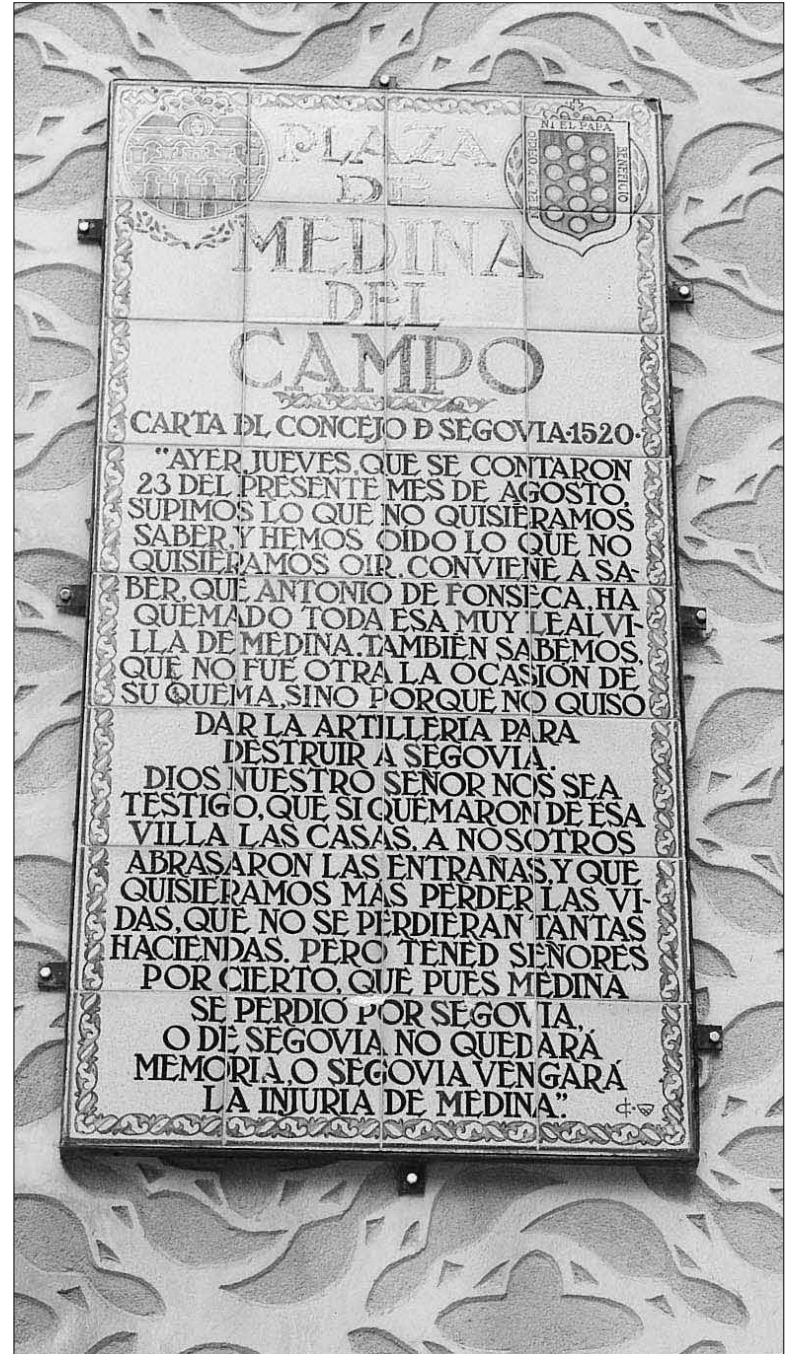 PLAZA
DE
MEDINA
DEL
CAMPO
NI EL PAPA
BENEFICIO
CARTA DL CONCEJO D SEGOVIA·1520·
"AYER, JUEVES, QUE SE CONTARON
23 DEL PRESENTE MES DE AGOSTO,
SUPIMOS LO QUE NO QUISIÉRAMOS
SABER, Y HEMOS OÍDO LO QUE NO
QUISIÉRAMOS OIR, CONVIENE A SA-
BER, QUE ANTONIO DE FONSECA, HA
QUEMADO TODA ESA MUY LEAL VI-
LLA DE MEDINA. TAMBIÉN SABEMOS,
QUE NO FUE OTRA LA OCASIÓN DE
SU QUEMA, SINO PORQUE NO QUISO
DAR LA ARTILLERÍA PARA
DESTRUIR A SEGOVIA.
DIOS NUESTRO SEÑOR NOS SEA
TESTIGO, QUE SI QUEMARON DE ESA
VILLA LAS CASAS, A NOSOTROS
ABRASARON LAS ENTRAÑAS, Y QUE
QUISIÉRAMOS MÁS PERDER LAS VI-
DAS, QUE NO SE PERDIERAN TANTAS
HACIENDAS. PERO TENED SEÑORES
POR CIERTO, QUE PUES MEDINA
SE PERDIÓ POR SEGOVIA,
O DE SEGOVIA NO QUEDARÁ
MEMORIA, O SEGOVIA VENGARÁ
LA INJURIA DE MEDINA".